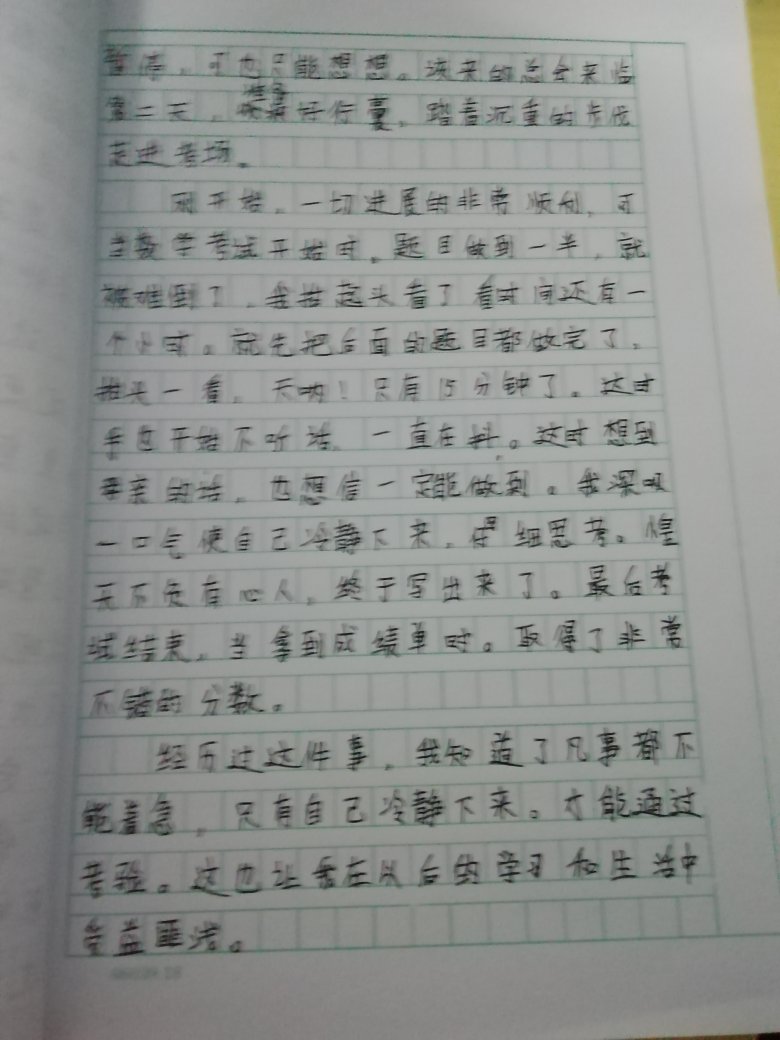 暂停，可也只能想想。该来的总会来临
第二天，准备好行囊，踏着沉重的步伐
走进考场。
刚开始，一切进展的非常顺利，可
当数学考试开始时，题目做到一半，就
被难倒了，我抬起头看了看时间还有一
个小时。就先把后面的题目都做完了，
抬头一看，天呐！只有15分钟了。这时
手也开始不听话，一直在抖。这时想到
母亲的话，也想信一定能做到。我深吸
一口气使自己冷静下来，仔细思考。煌
天不负有心人，终于写出来了。最后考
试结束，当拿到成绩单时。取得了非常
不错的分数。
经历过这件事，我知道了凡事都不
能着急，只有自己冷静下来。才能通过
考验。这也让我在从后的学习和生活中
受益匪浅。